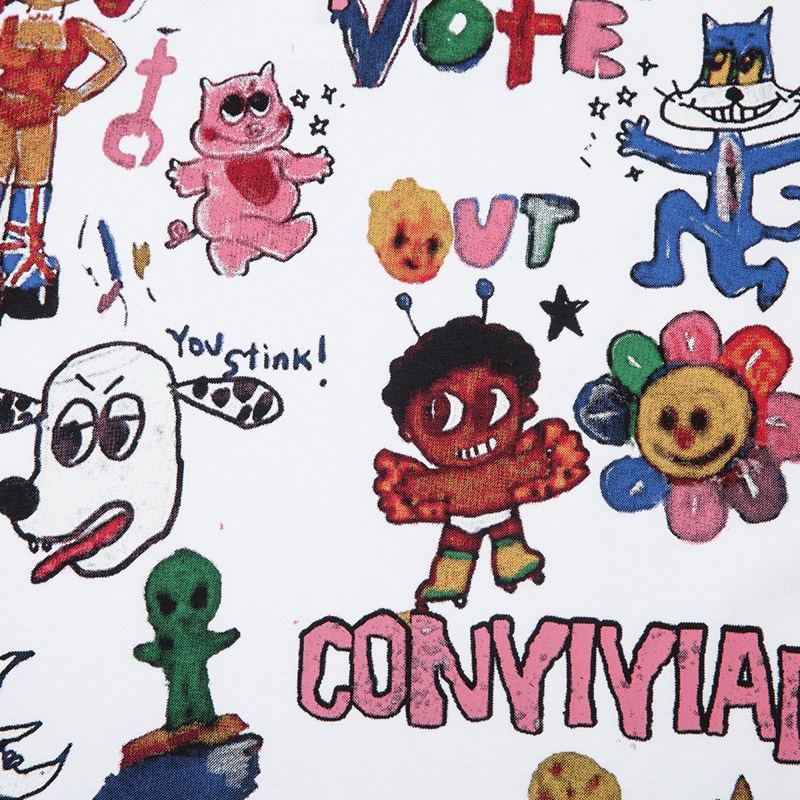 VOTE
OUT
YOU
Stink!
CONVIVIAL